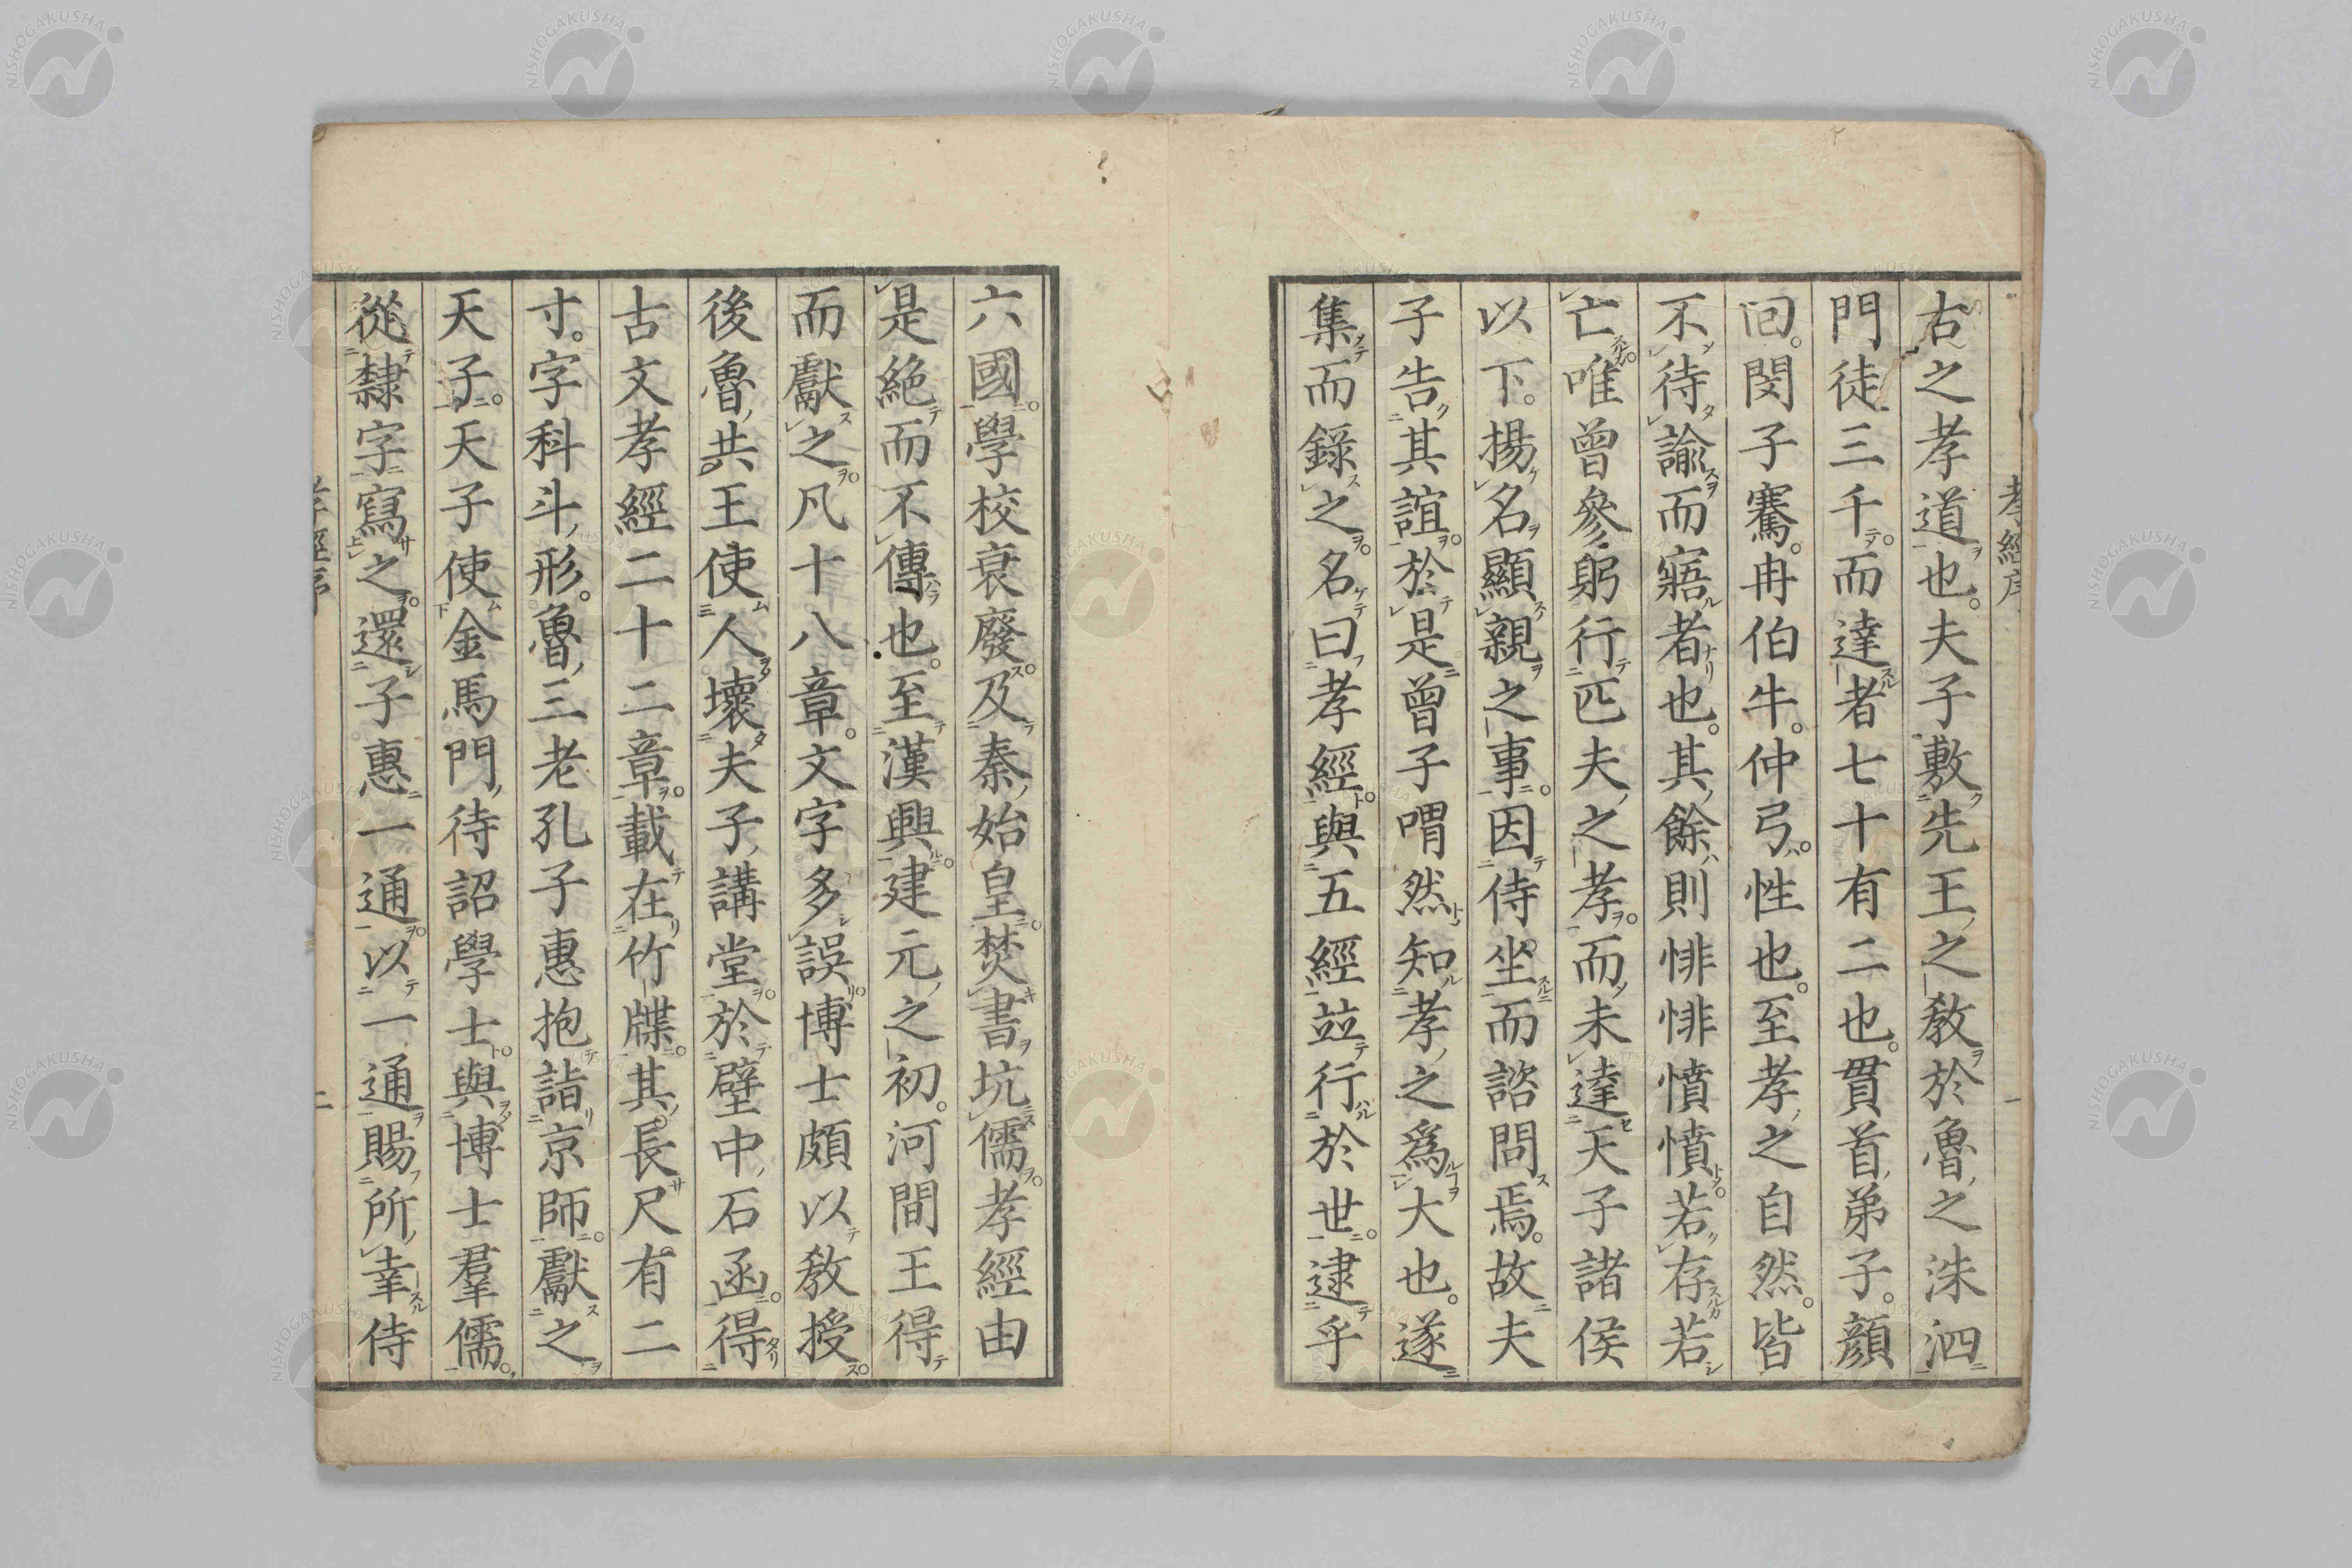 孝經序
一
古之孝道也夫子敷先王之教於魯之洙泗
門徒三千而達者七十有二也貫首弟子顏
回閔子騫冉伯牛仲弓性也至孝之自然皆
不待諭而寤者也其餘則悱悱憤憤若存若
亡唯曾參躬行匹夫之孝而未達天子諸侯
以下揚名顯親之事因侍坐而諮問焉故夫
子告其誼於是曾子喟然知孝之爲大也遂
集而錄之名曰孝經與五經竝行於世逮乎
六國學校衰廢及秦始皇焚書坑儒孝經由
是絶而不傳也至漢興建元之初河間王得
而獻之凡十八章文字多誤博士頗以教授
後魯共王使人壞夫子講堂於壁中石函得
古文孝經二十二章載在竹牒其長尺有二
寸字科斗形魯三老孔子惠抱詣京師獻之
天子天子使金馬門待詔學士與博士羣儒
從隸字寫之還子惠一通以一通賜所幸侍
孝經序
二
NISHOGAKUSHA